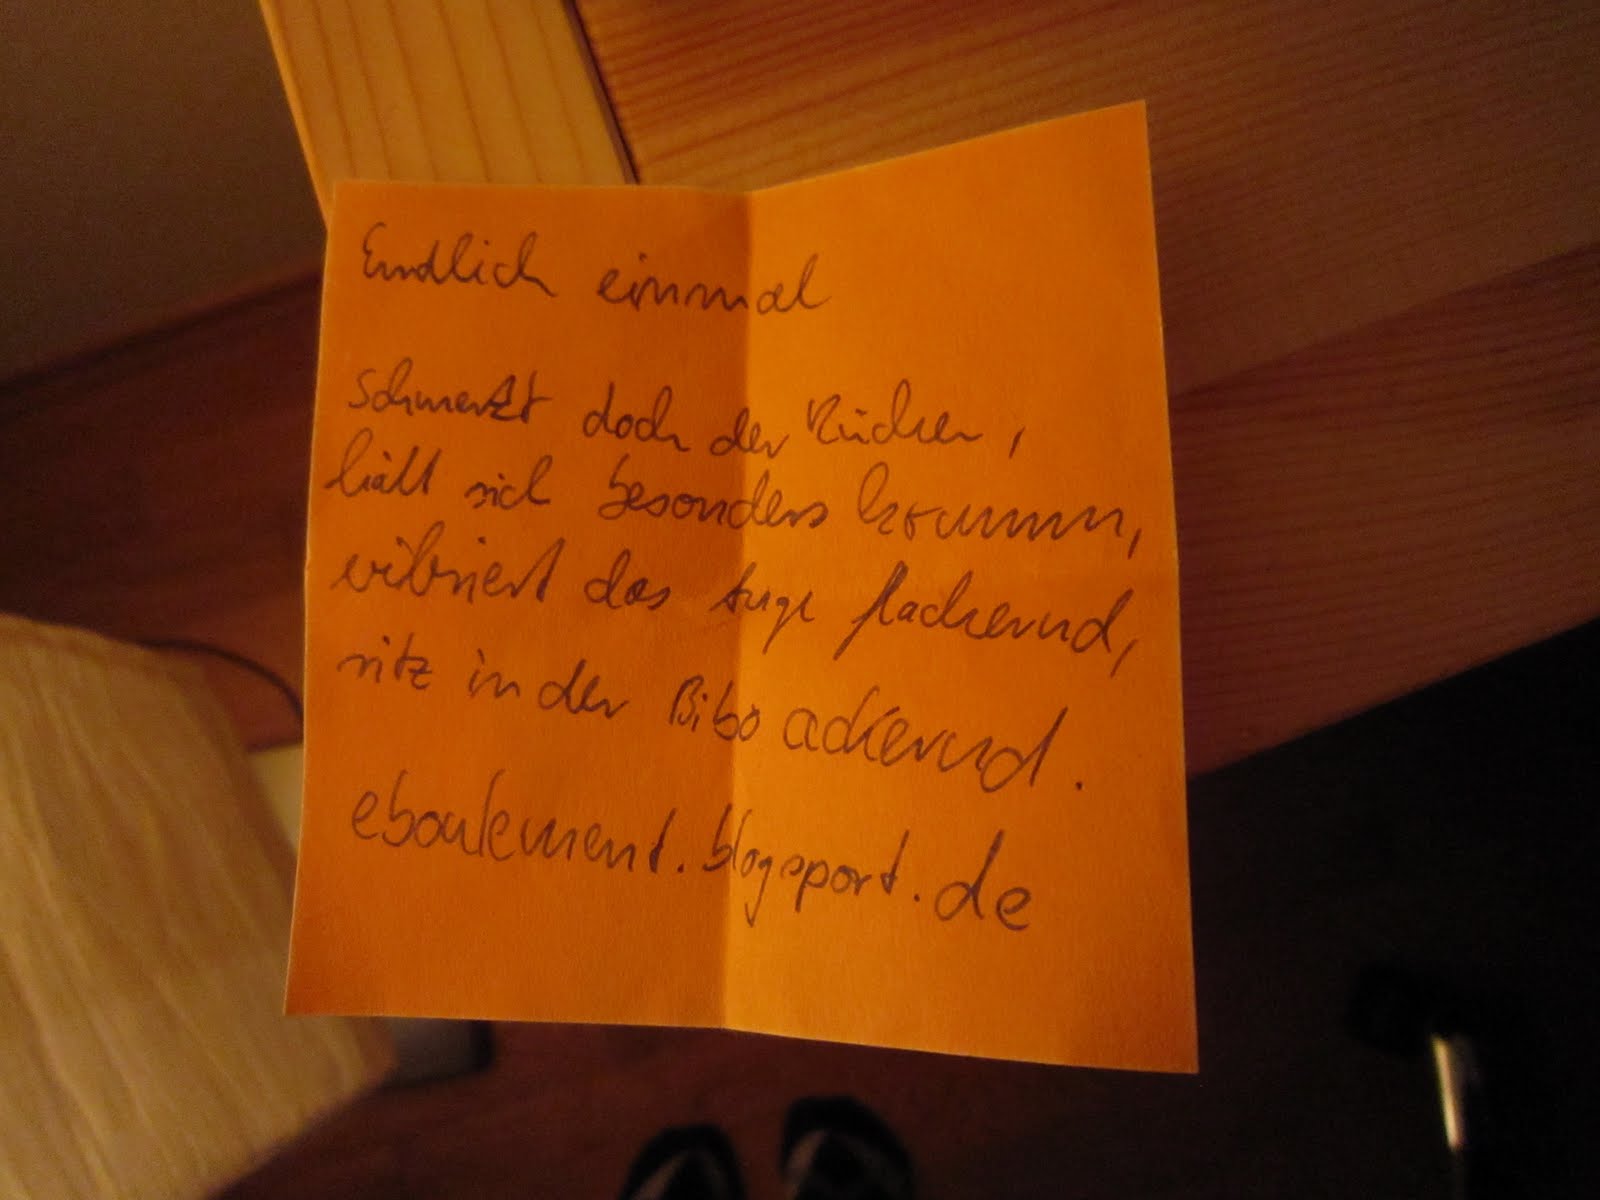 Endlich einmal
schmerzt doch der Rücken,
hält sich besonders krumm,
vibriert das Auge flackernd,
sitz in der Bibo ackernd.
eboulement.blogsport.de